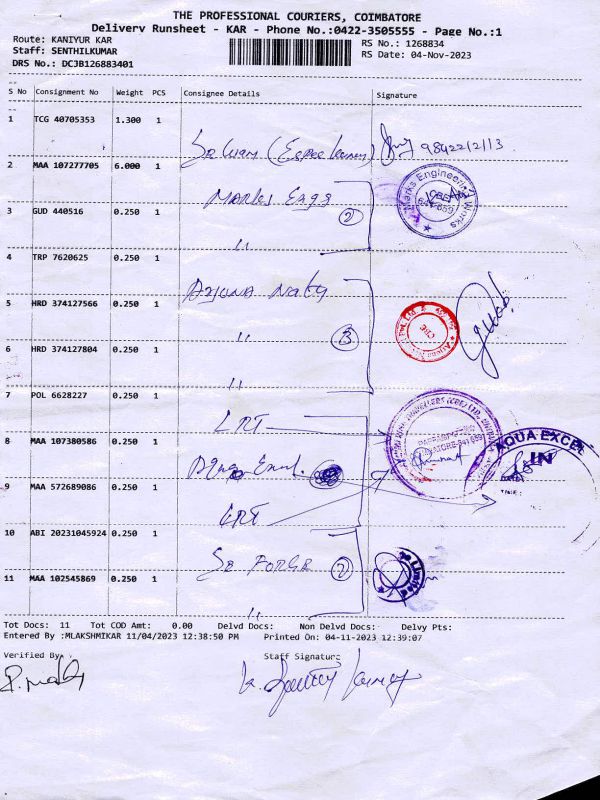 THE PROFESSIONAL COURIERS, COIMBATORE
Delivery Runsheet - KAR - Phone No.:0422-3505555 - Page No.:1
Route: KANIYUR KAR
RS No.: 1268834
Staff: SENTHILKUMAR
RS Date: 04-Nov-2023
DRS No.: DCJB126883401
S No Consignment No Weight PCS Consignee Details Signature
1 TCG 40705353 1.300 1
2 MAA 107277705 6.000 1
Marks Engg
Marks Engineering Works
3 GUD 440516 0.250 1
"
2
4 TRP 7620625 0.250 1
5 HRD 374127566 0.250 1
"
3
6 HRD 374127804 0.250 1
"
7 POL 6628227 0.250 1
LRT
8 MAA 107380586 0.250 1
AQUA EXCEL
IN
9 MAA 572689086 0.250 1
LRT
10 ABI 20231045924 0.250 1
2
Limited
11 MAA 102545869 0.250 1
"
Tot Docs: 11 Tot COD Amt: 0.00 Delvd Docs: Non Delvd Docs: Delvy Pts:
Entered By :MLAKSHMIKAR 11/04/2023 12:38:50 PM Printed On: 04-11-2023 12:39:07
Verified By Staff Signature